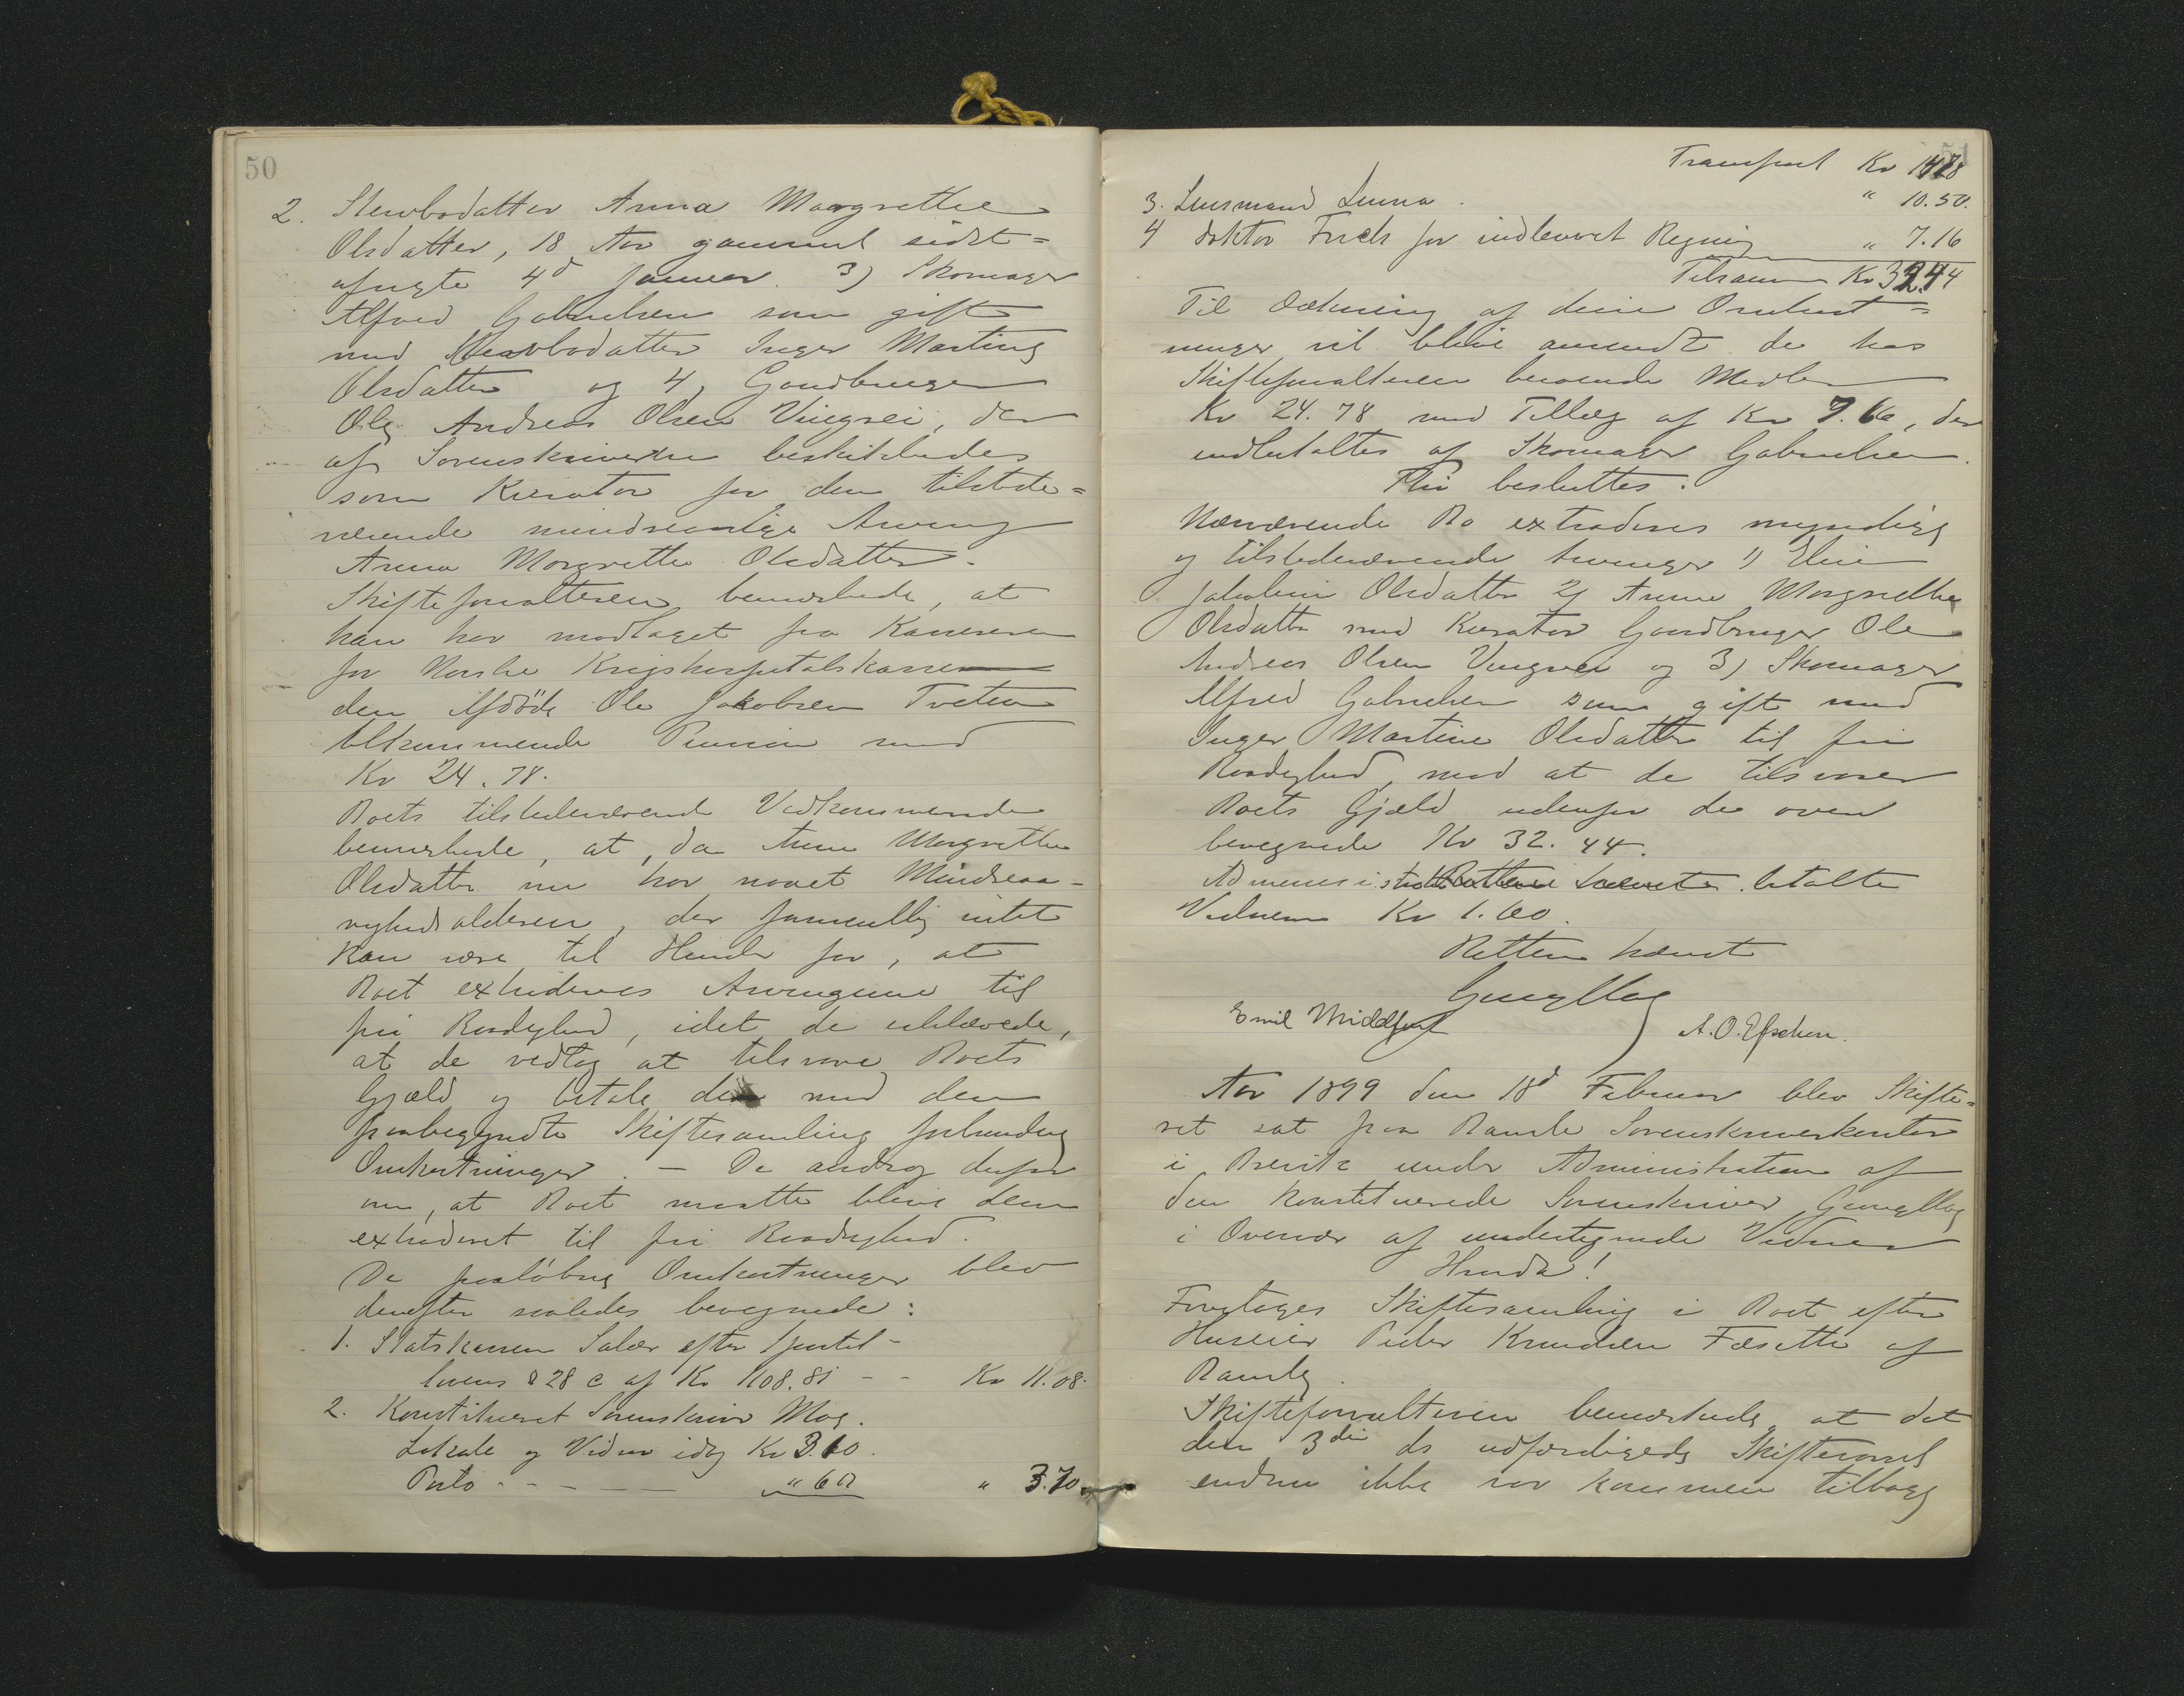 50
2. Stervbodatter Anna Margrethe
Olsdatter, 18 Aar gammel sidst-
afvigte 4d Januar. 3) Skomager
Alfred Gabrielsen som gift
med Stervbodatter Inger Martine
Olsdatter og 4, Gaardbruger
Ole Andreas Olsen Vingrei, der
af Sorenskriveren beskikkedes
som Kurator for den tilstede-
værende mindreaarige Arving
Anna Margrethe Olsdatter.
Skifteforvalteren bemærkede, at
han har modtaget fra Kassereren
for Norske Krigshospitalskasse
den afdøde Ole Jakobsen Tveten
tilkommende Pension med
Kr 24.78.
Boets tilstedeværende Vedkommende
bemærkede, at, da Anna Margrethe
Olsdatter nu har naaet Mindreaa-
righedsalderen, der formentlig intet
kan være til Hinder for, at
Boet extraderes Arvingerne til
fri Raadighed, idet de erklærede,
at de vedtog at tilsvare Boets
Gjæld og betale de med den
paabegyndte Skiftesamling forbundne
Omkostninger. — De androg derfor
om, at Boet maatte blive dem
extraderet til fri Raadighed.
De paaløbne Omkostninger blev
derefter saaledes beregnede:
1. Statskassen Salær efter Sportel-
lovens § 28 c af Kr 1108.81 - - Kr 11.08.
2. Konstitueret Sorenskriver Mag.
Lokale og Vidner idag Kr 3.10.
Porto - - - - " 60 " 3.70
Transport Kr 14.78
3. Lensmand " 10.50.
4 doktor for indleveret Regning " 7.16
Tilsammen Kr 32.44
Til Dækning af disse Omkost-
ninger vil blive anvendt de hos
Skifteforvalteren beroende Midler
Kr 24.78 med Tillæg af Kr 7.66, der
indbetaltes af Skomager Gabrielsen.
Thi besluttes:
Nærværende Bo extraderes myndige
og tilstedeværende Arvinger 1) Eline
Jakobine Olsdatter 2) Anna Margrethe
Olsdatter med Kurator Gaardbruger Ole
Andreas Olsen Vingrei og 3) Skomager
Alfred Gabrielsen som gift med
Inger Martine Olsdatter til fri
Raadighed, mod at de tilsvarer
Boets Gjæld udenfor de oven
beregnede Kr 32.44.
betalte
Vidnerne Kr 1.60.
Retten hævet
Emil Middel A. O.
Aar 1899 den 18d Februar blev Skifte-
ret sat paa Bamle Sorenskriverkontor
i Brevik under Administration af
den konstituerede Sorenskriver
i Overvær af undertegnede Vidner
Hvorda!
Foretoges Skiftesamling i Boet efter
Huseier Peder Knudsen af
Bamle.
Skifteforvalteren bemærkede, at det
den 3die ds udfærdigede
endnu ikke var kommen tilbage